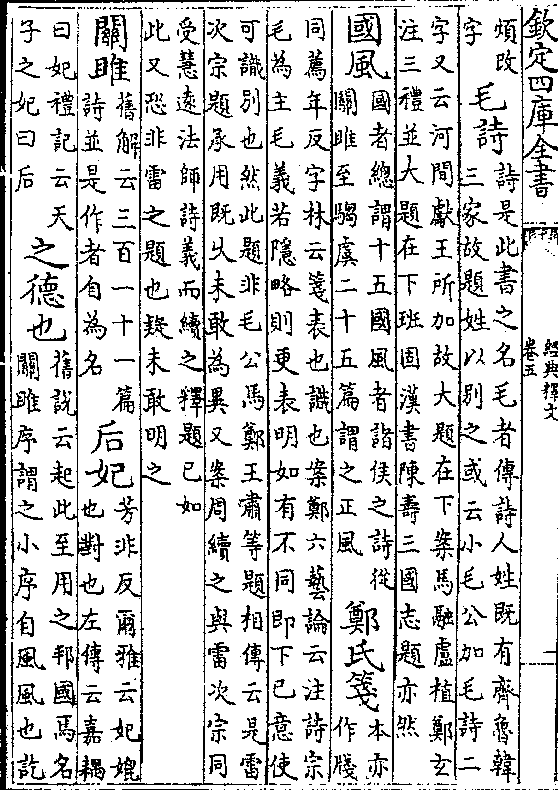 欽定四庫全書
經典釋文
卷五
一
煩改
字
毛詩
詩是此書之名毛者傳詩人姓既有齊魯韓
三家故題姓以別之或云小毛公加毛詩二
字又云河間獻王所加故大題在下案馬融盧植鄭玄
注三禮並大題在下班固漢書陳壽三國志題亦然
國風
國者總謂十五國風者諸侯之詩從
關雎至騶虞二十五篇謂之正風
鄭氏箋
本亦
作牋
同薦年反字林云箋表也識也案鄭六藝論云注詩宗
毛為主毛義若隱略則更表明如有不同即下已意使
可識別也然此題非毛公馬鄭王肅等題相傳云是雷
次宗題承用既久未敢為異又案周續之與雷次宗同
受慧遠法師詩義而續之釋題已如
此又恐非雷之題也疑未敢明之
關雎
舊解云三百一十一篇
詩並是作者自為名
后妃
芳非反爾雅云妃媲
也對也左傳云嘉耦
曰妃禮記云天
子之妃曰后
之德也
舊說云起此至用之邦國焉名
關雎序謂之小序自風風也訖